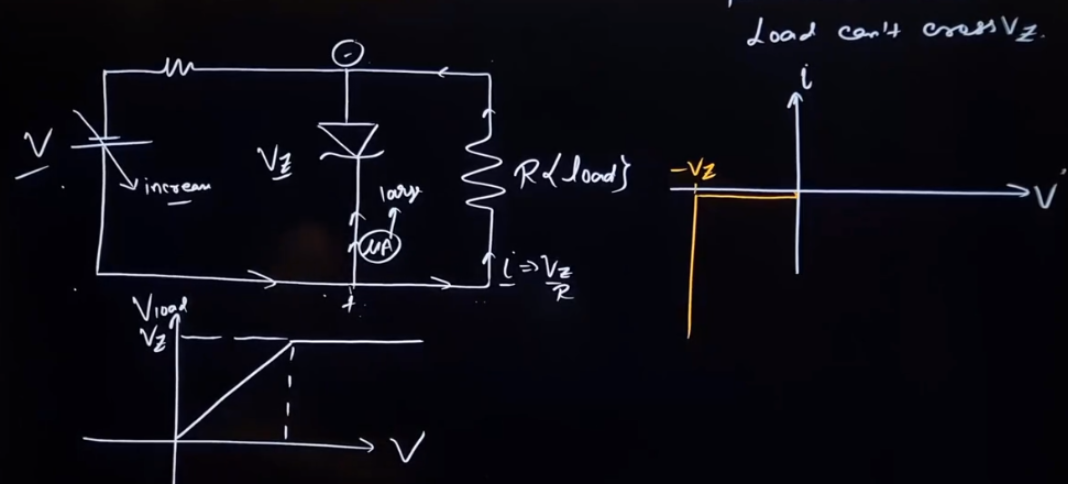 Load can't cross Vz.
i
V
-Vz
V
increase
Vz
large
μA
R{load}
i ⇒ Vz/R
-
+
Vload
Vz
V